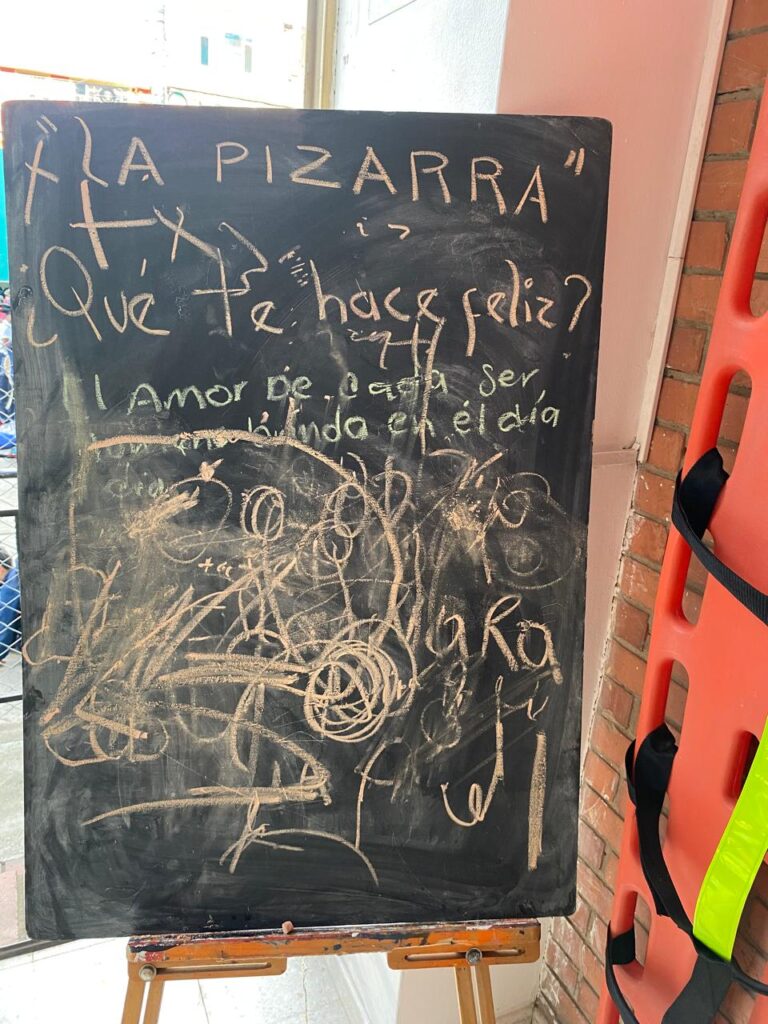 "LA PIZARRA"
¿Qué te hace feliz?
l Amor De cada ser
humano brinda en él día
dia
aRa